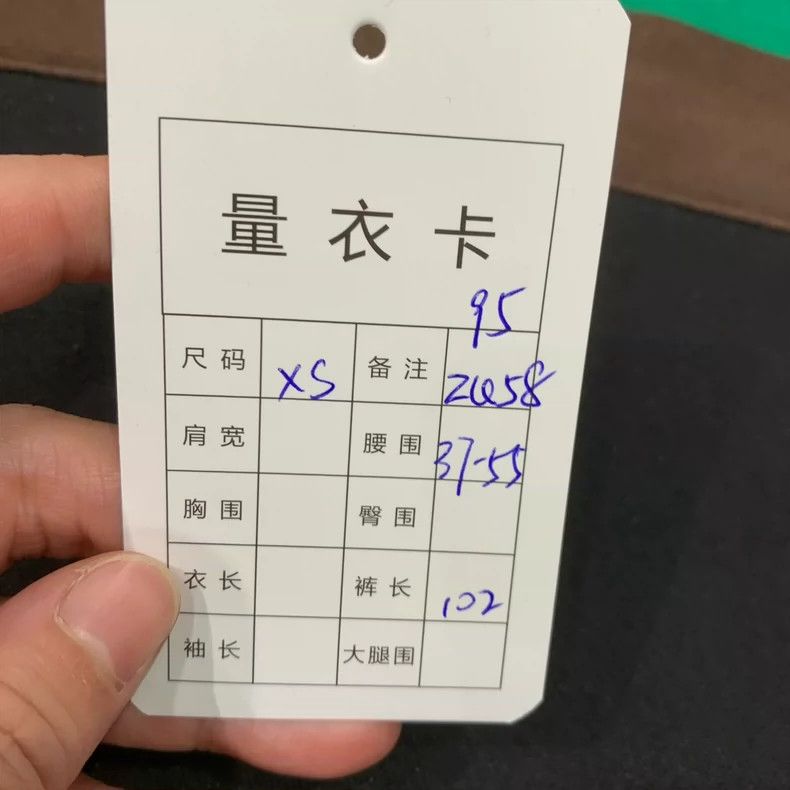 量衣卡
95
尺码 XS 备注 2658
肩宽 腰围 37-55
胸围 臀围
衣长 裤长 102
袖长 大腿围